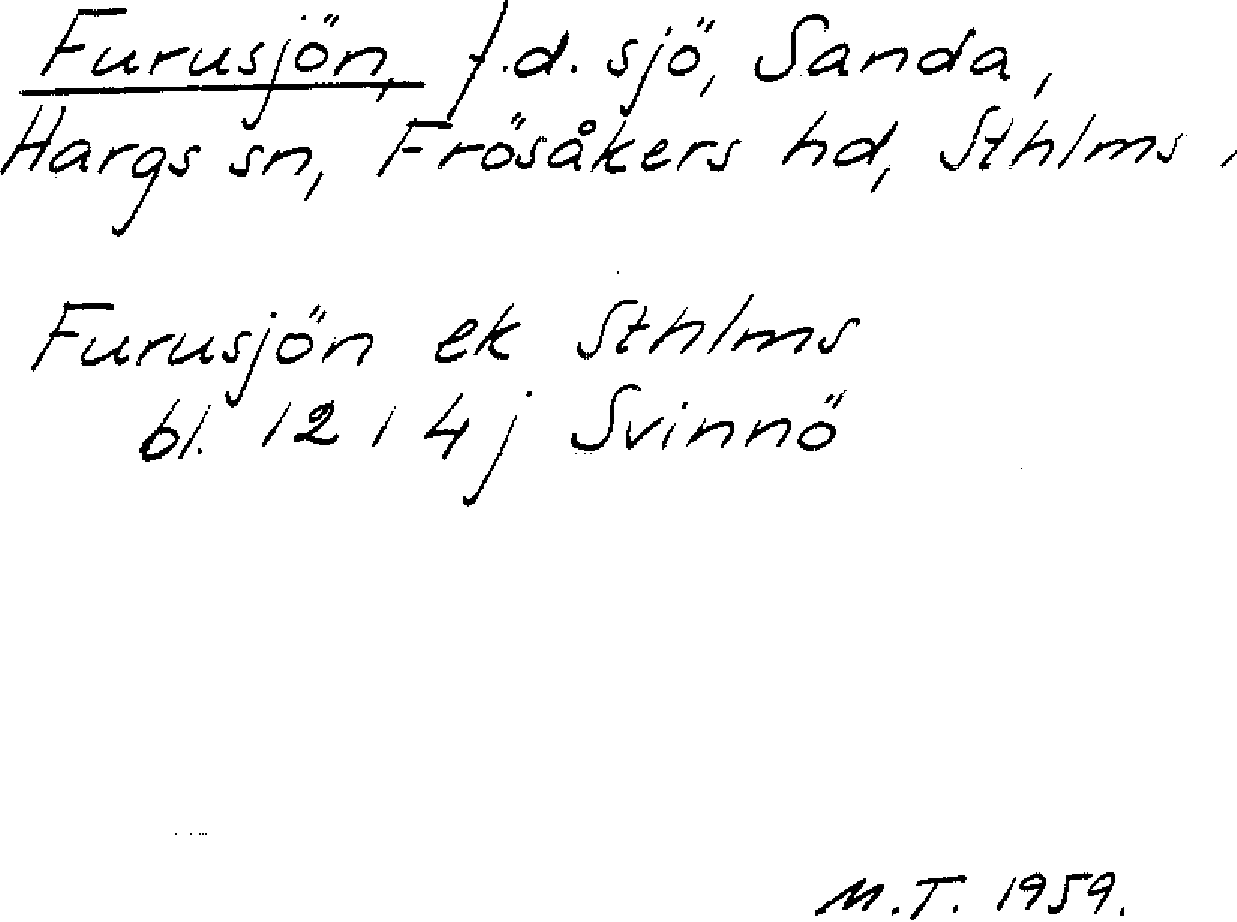 Furusjön, f.d. sjö, Sanda,
Hargs sn, Frösåkers hd, Sthlms,
Furusjön ek Sthlms
bl. 12 1 4 j Svinnö
M.T. 1959.